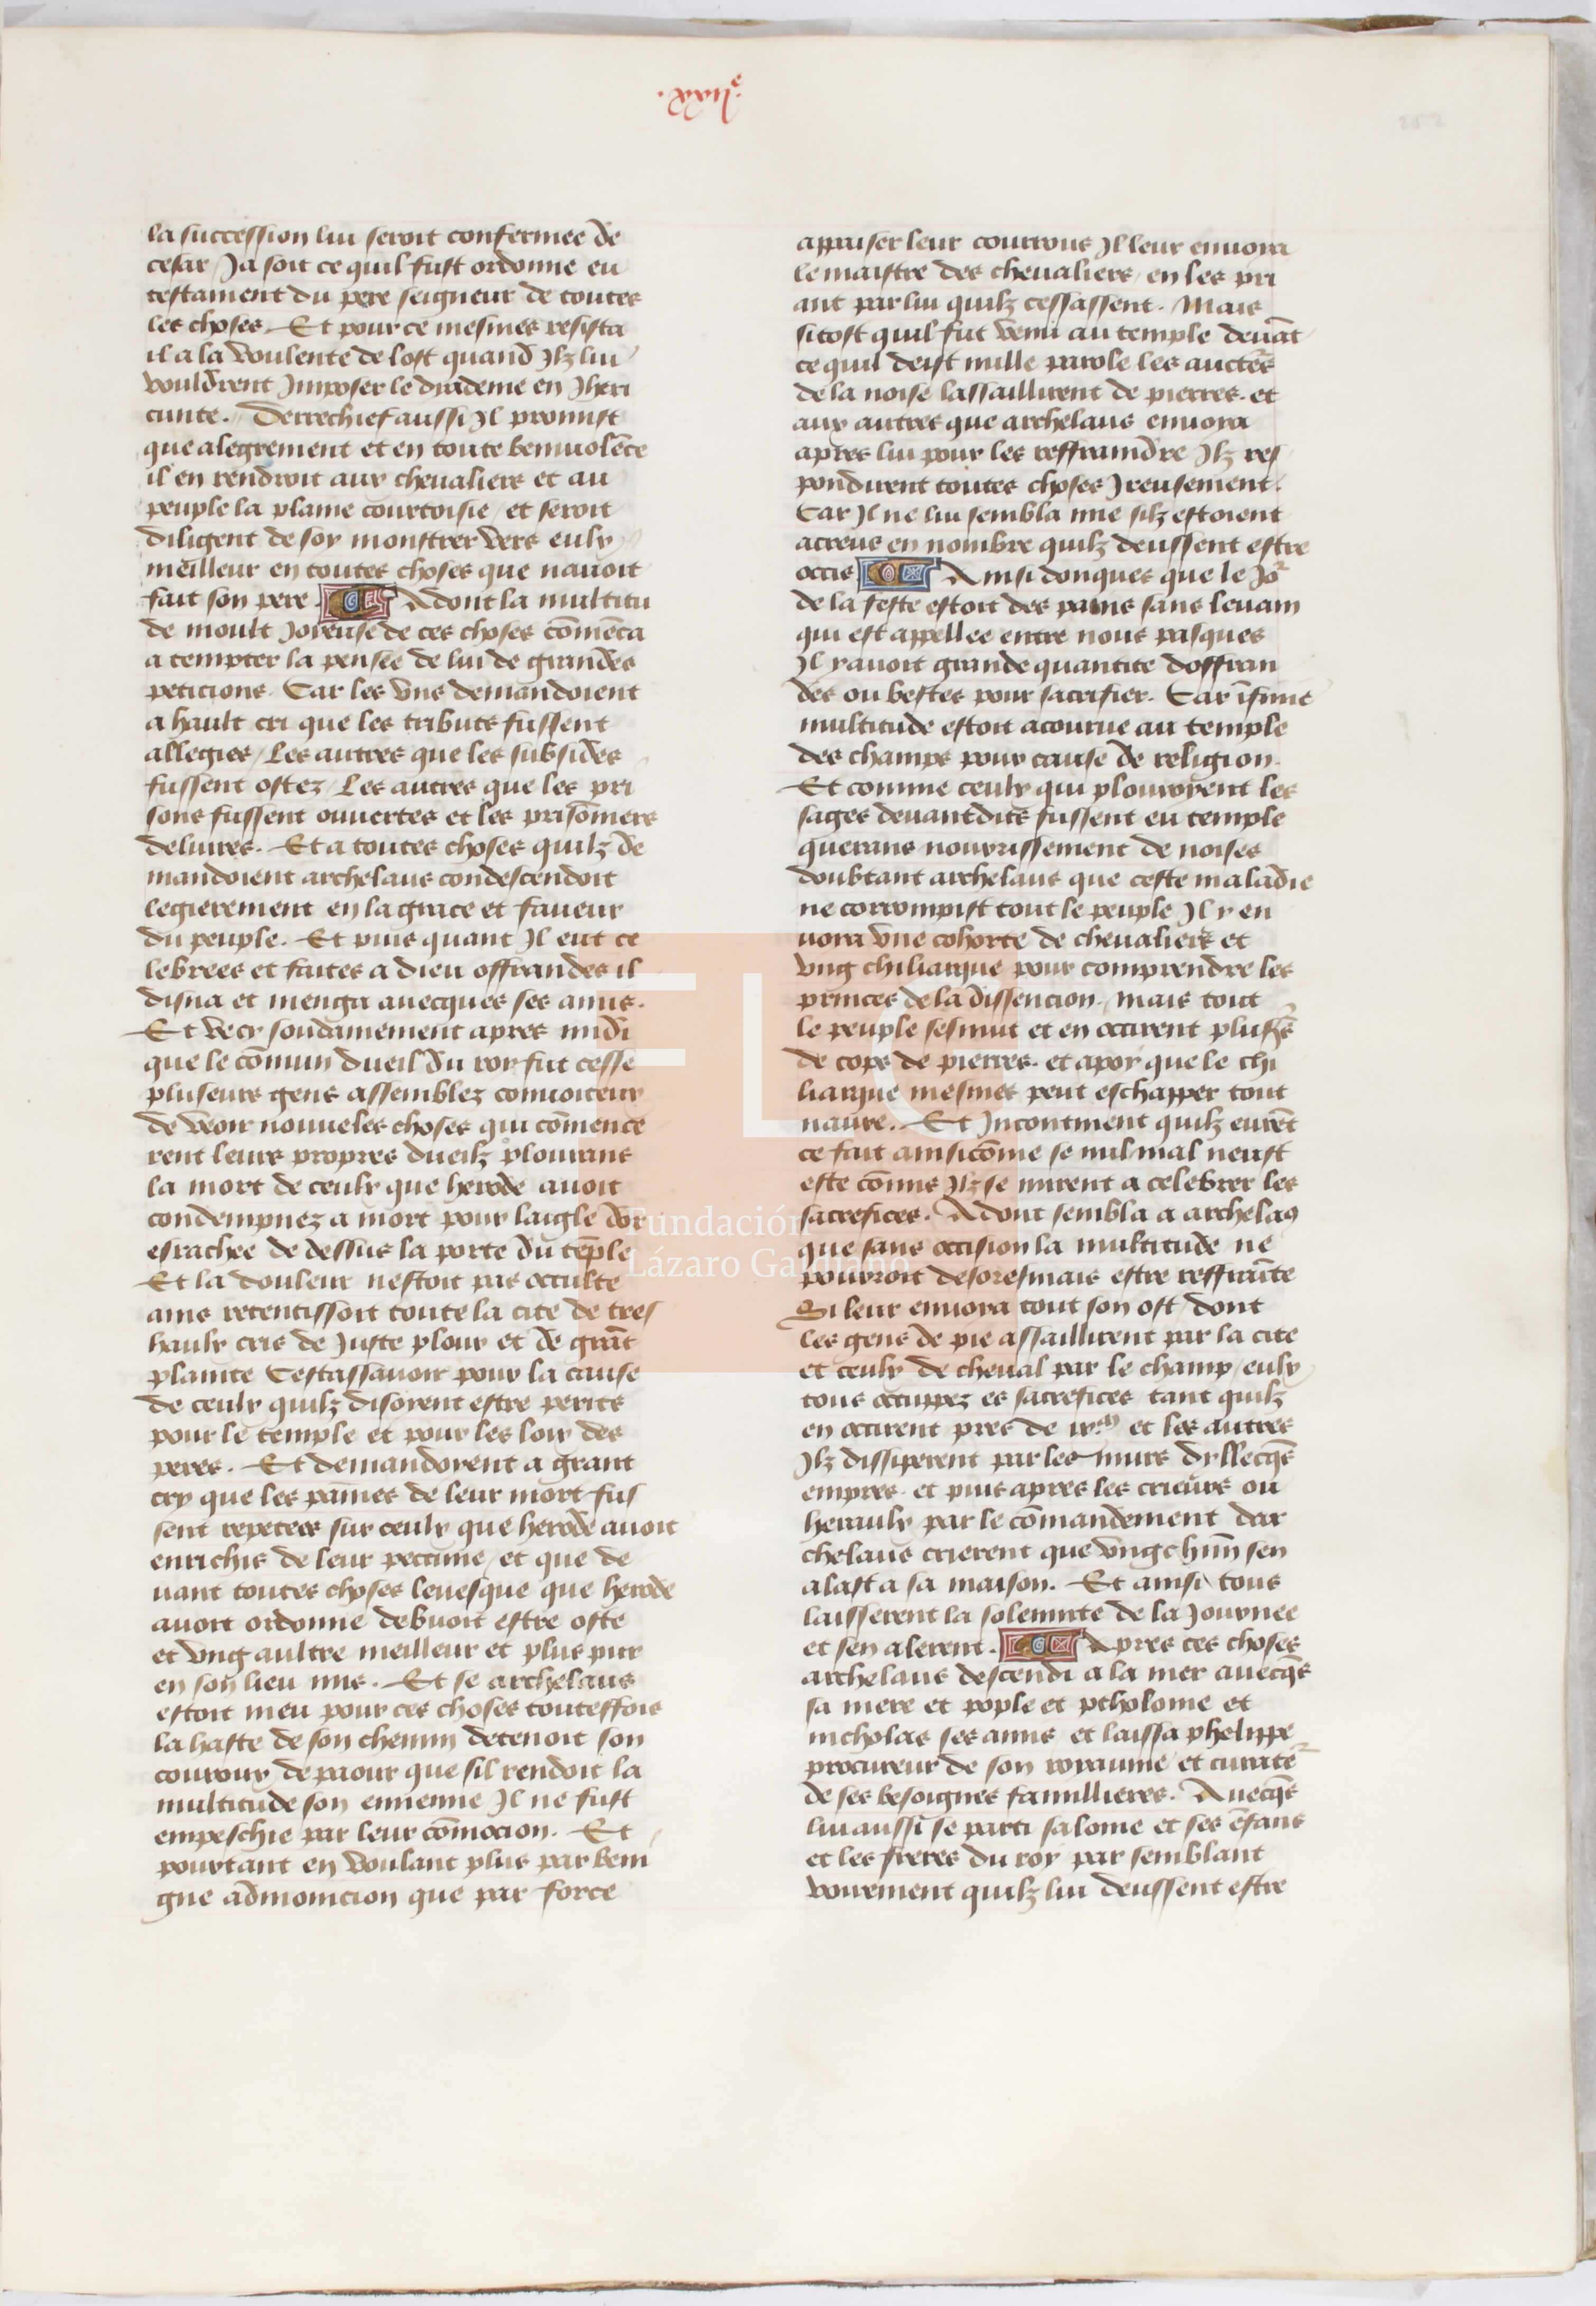 la succession lui seroit confermee de
cesar Ja soit ce quil fust ordonne eu
testament du pere seigneur de toutes
les choses. Et pour ce mesmes resista
il a la voulente de lost quand Ilz lui
vouldrent Imposer le diademe en Iheri
cunte. Derrechief aussi Il promist
que alegrement et en toute beniuolēce
il en rendroit aux chevaliers et au
peuple la plaine courtoisie / et seroit
diligent de soy monstrer vers eulx
meilleur en toutes choses que nauoit
fait son pere. Adont la multitu
de moult Joyeuse de ces choses cōmēca
a tempter la pensee de lui de grandes
peticions. Car les vns demandoient
a hault cri que les tributs fussent
allegies / Les autres que les subsides
fussent ostez / Les autres que les pri
sons fussent ouuertes et les prisōniers
deliures. Et a toutes choses quilz de
mandoient archelaus condescendoit
legierement en la grace et faueur
du peuple. Et puis quant Il eut ce
lebrees et faites a dieu offrandes il
disna et menga auecques ses amis.
Et vecy soudainement apres midi
que le cōmun dueil du roy fut cesse
pluseurs gens assemblez conuoiteux
de veoir nouueles choses qui cōmence
rent leurs propres dueilz plourans
la mort de ceulx que herode auoit
condempnez a mort pour laigle dor
esrachee de dessus la porte du tēple
Et la douleur nestoit pas occulte
ains retentissoit toute la cite de tres
haulx cris de Juste plour et de grāt
plainte Cestassauoir pour la cause
de ceulx quilz disoient estre perits
pour le temple et pour les loix des
peres. Et demandoient a grant
cry que les paines de leur mort fus
sent repetees sur ceulx que herode auoit
enrichis de leur peccune / et que de
uant toutes choses leuesque que herode
auoit ordonne debuoit estre oste
et vng aultre meilleur et plus pur
en son lieu mis. Et se archelaus
estoit meu pour ces choses touteffois
la haste de son chemin detenoit son
courroux, de paour que sil rendoit la
multitude son ennemie Il ne fust
empeschie par leur cōmocion. Et
pourtant en voulant plus par beni
gne admonicion que par force
.lxxxe.
appaiser leur courrous Il leur enuoia
le maistre des cheualiers / en les pri
ant par lui quilz cessassent. Mais
sitost quil fut venu au temple deuāt
ce quil deist nulle parole les auctēs
de la noise lassaillirent de pierres. et
aux autres que archelaus enuoya
apres lui pour les reffraindre Ilz res
pondirent toutes choses Ireusement.
Car Il ne lui sembla mie silz estoient
acreus en nombre quilz deussent estre
occis. Ainsi donques que le Jor
de la feste estoit des pains sans leuain
qui est appellee entre nous pasques
Il y auoit grande quantite doffran
des ou bestes pour sacrifier. Car īfinie
multitude estoit acourue au temple
des champs pour cause de religion.
Et comme ceulx qui plouroyent les
sages deuantdits fussent eu temple
querans nourrissement de noises
doubtant archelaus que ceste maladie
ne corrompist tout le peuple Il y en
uoia vne cohorte de cheualiers et
vng chiliarque pour comprendre les
princes de la dissencion. mais tout
le peuple sesmut et en occirent plusrs
de cops de pierres. et apoy que le chi
liarque mesmes peut eschapper tout
naure. Et Incontinent quilz eurēt
ce fait ainsi cōme se nul mal neust
este cōmis Ilz se mirent a celebrer les
sacrefices. Adont sembla a archela9
que sans occision la multitude ne
pourroit desoresmais estre reffrainte
Si leur enuoia tout son ost / dont
les gens de pie assaillirent par la cite
et ceulx de cheual par le champ / eulx
tous occuppez es sacrefices tant quilz
en occirent pres de iij.m et les autres
Ilz dissiperent par les murs dyllecqs
empres. et puis apres les crieurs ou
heraulx par le cōmandement dar
chelaus crierent que vngchūn sen
alast a sa maison. Et ainsi tous
laisserent la solemnite de la Journee
et sen alerent. Apres ces choses
archelaus descendi a la mer auecqs
sa mere et pople et ptholome et
nicholas ses amis et laissa phelippe
procureur de son royaume / et curater
de ses besoignes famillieres. Auecqs
lui aussi se parti salome et ses ēfans
et les freres du roy par semblant
voirement quilz lui deussent estre
Fundación
Lázaro Galdiano